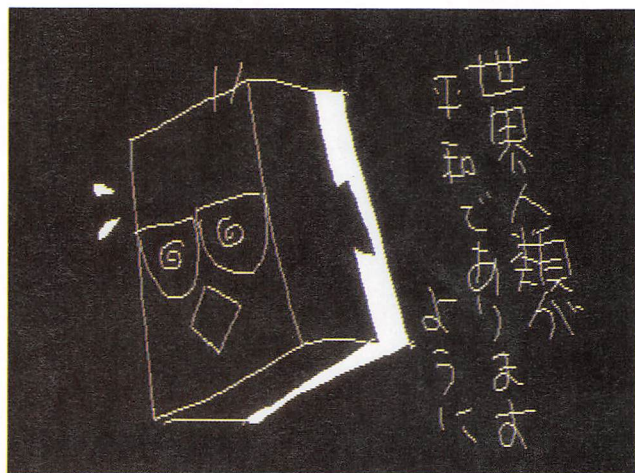 世界人類が
平和でありますように